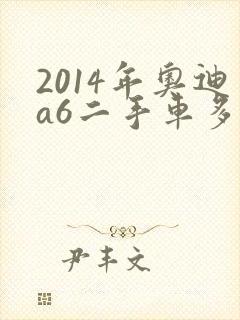 2014年奥迪
a6二手车多
尹丰文